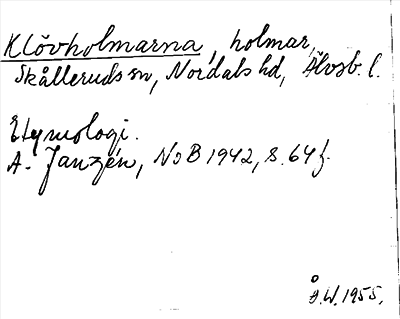 Klövholmarna, holmar,
Skålleruds sn, Nordals hd, Älvsb. l.
Etymologi.
A. Janzén, NoB 1942, s. 64 f.
Å.W. 1955.